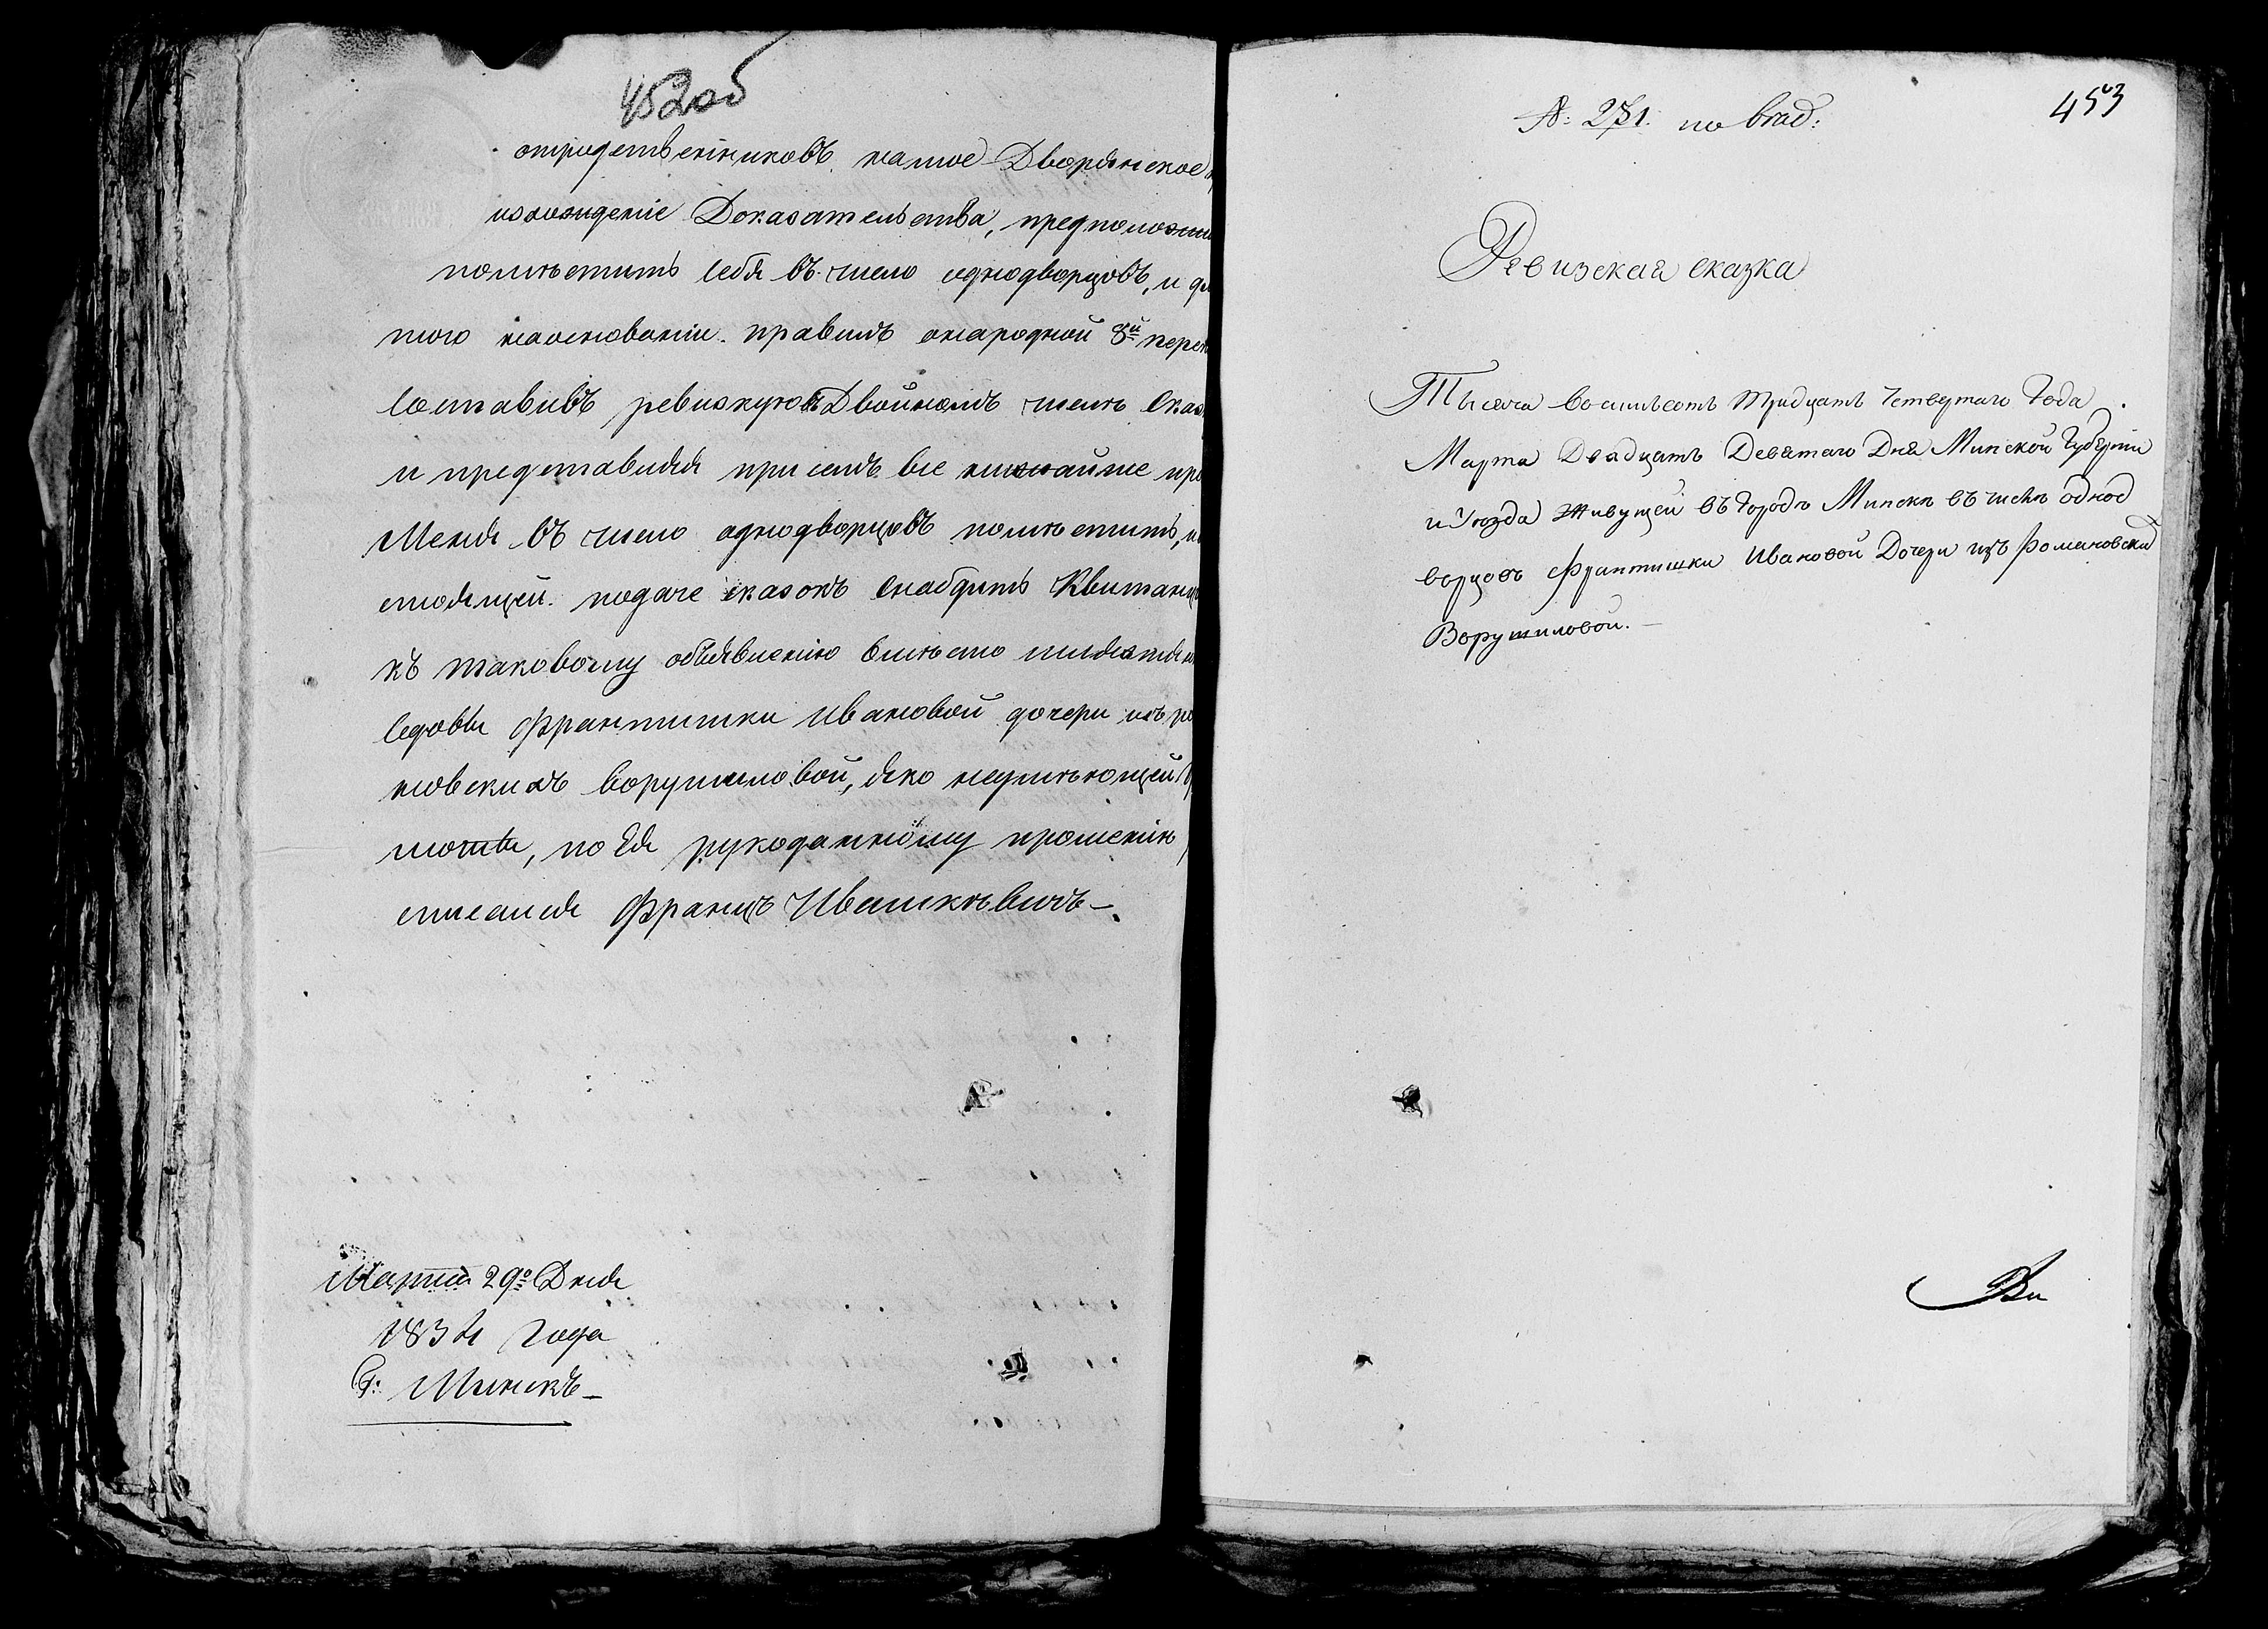 452об
отродственниковъ натое Дворянское
исхождение Доказательства, предположи
поместить себя въ число однодворцовъ, и дл
того наосновании правилъ онародной 8й пере
Составивъ ревизкую въ Двойномъ числе Сказ
и представляя при семъ все нижайше про
Меня въ число однодворцовъ поместить, и
стоящей подаче сказокъ снабдить Квитанц
къ таковому объявлению вместо
седовы Франтишки Ивановой дочери изъ ро
мовскихъ Ворушиловой, яко неумеющей
моты, по Ея рукоданному прошению
списался Францъ Ивашкевичъ
Марта 29го Дня
1834 Года
Г: Минскъ
№: 271. по вход:
453
Ревизская сказка
Тысяча восимьсотъ тридцать четвертаго Года
Марта Двадцать Девятаго Дня Минской Губернии
и Уезда Живущей въ городе Минске въ числе однод
ворцовъ Франтишки Ивановой Дочери изъ Романовский
Ворушиловой.